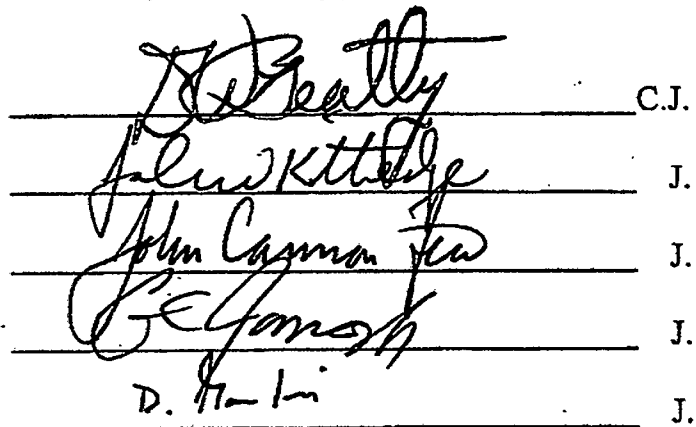 D W Beatty C.J.
John W Kittredge J.
John Cannon Few J.
G C James Jr J.
D. J.